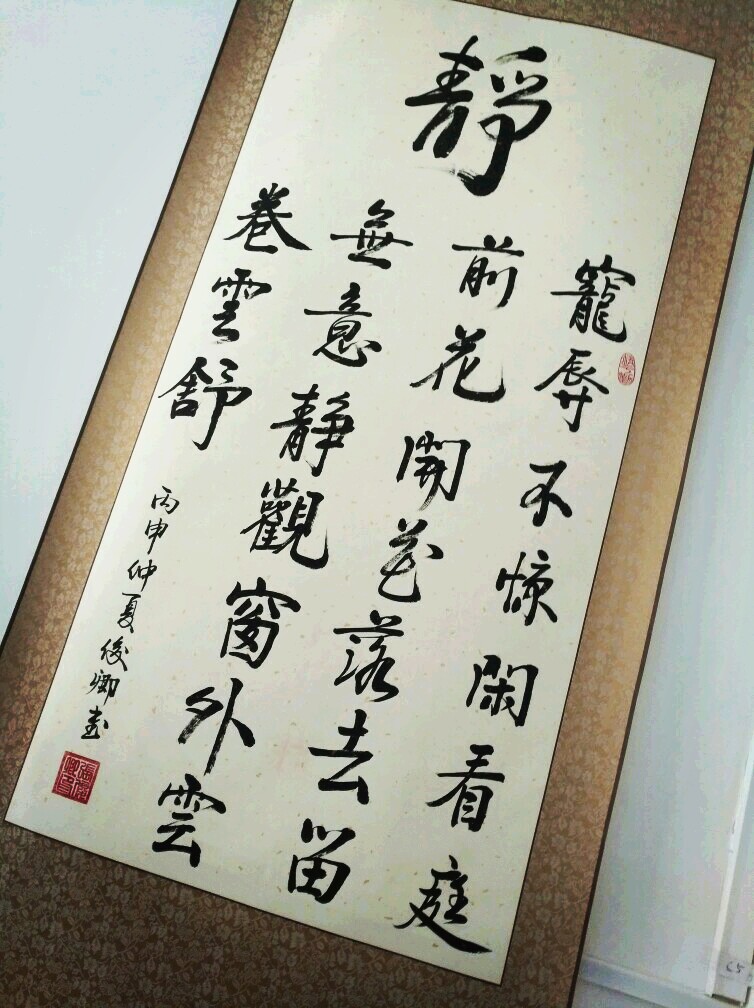 靜
寵辱不驚閑看庭
前花開花落去留
無意靜觀窗外雲
卷雲舒
丙申仲夏俊卿書
C5